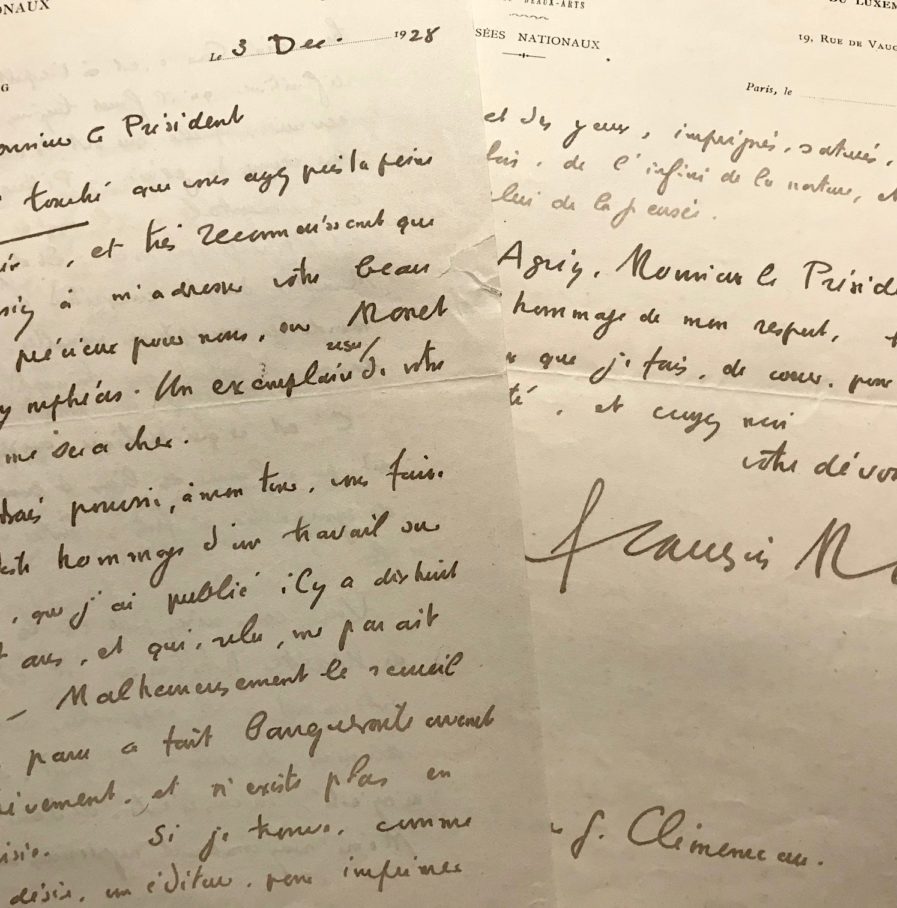 ONAUX
Le 3 Dec. 1928
G
Monsieur le Président
touché que vous ayez pris la peine
, et très reconnaissant que
à m'adresser votre beau
précieux pour nous, sur Monet
nymphéas. Un exemplaire de votre
me sera cher.
pouvoir, à mon tour, vous faire
hommage d'un travail sur
, que j'ai publié il y a dix huit
ans, et qui, relu, me paraît
– Malheureusement le recueil
paru a fait banqueroute avant
, et n'existe plus en
Si je trouve, comme
désir, un éditeur, pour imprimer
BEAUX-ARTS
SÉES NATIONAUX
DU LUXEM
19, RUE DE VAUG
Paris, le
et des yeux, imprégnés, saturés,
, de l'infini de la nature, et
celui de la pensée.
Agréez, Monsieur le Préside
hommage de mon respect,
que je fais, de cœur, pour
té, et croyez moi
votre dévou
François M
G. Clemenceau.